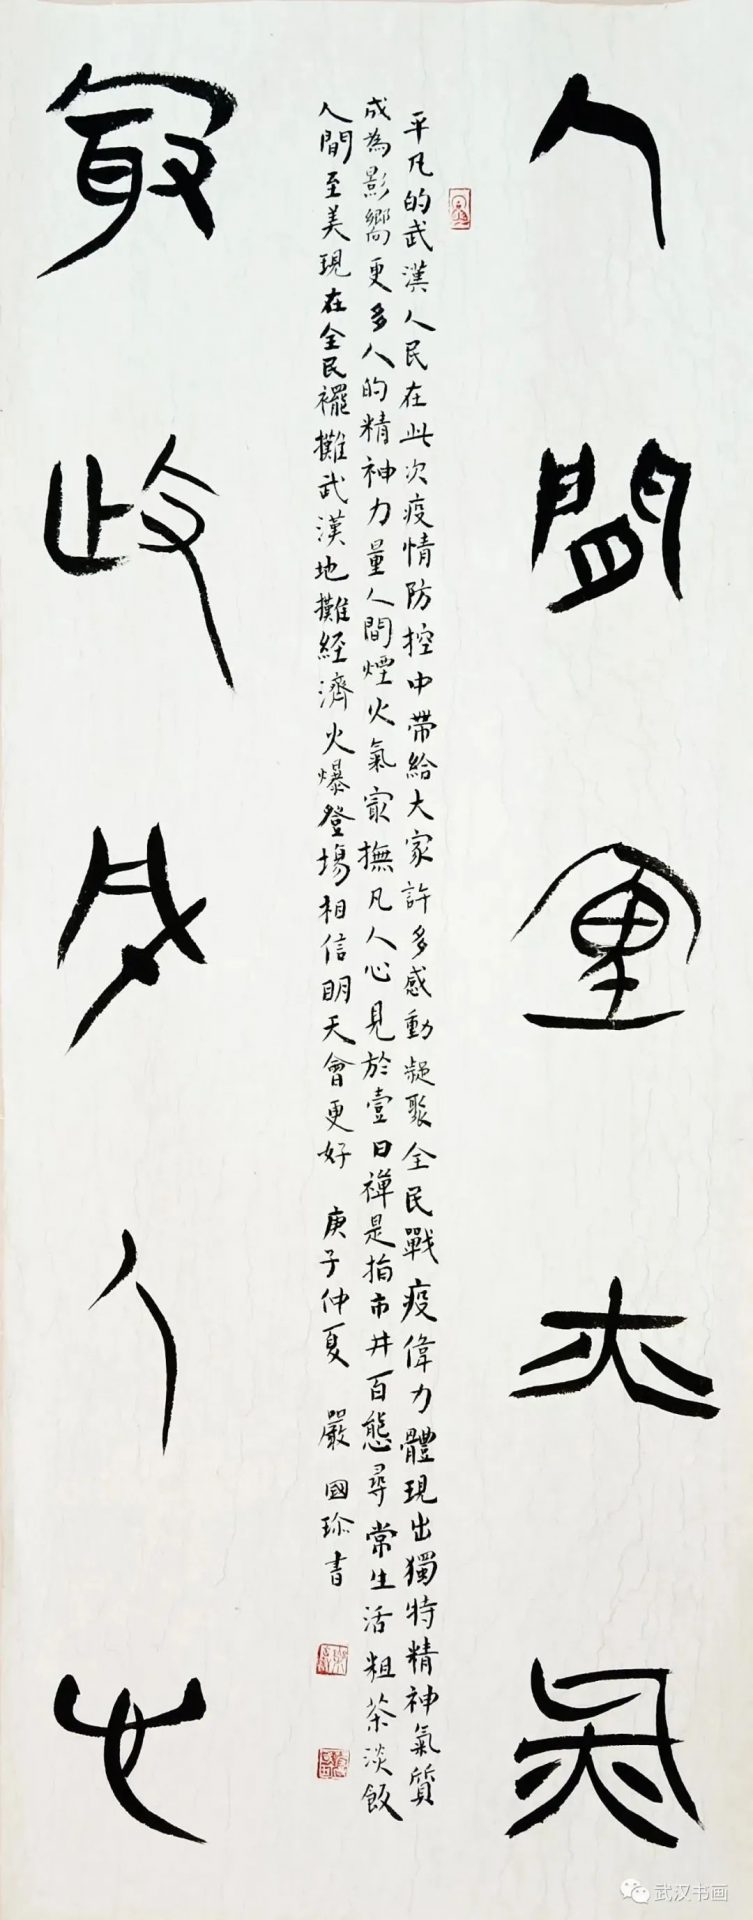 人間煙火氣
最撫凡人心
平凡的武漢人民在此次疫情防控中帶給大家許多感動凝聚全民戰疫偉力體現出獨特精神氣質
成為影嚮更多人的精神力量人間煙火氣㝡撫凡人心見於壹日禪是指市井百態尋常生活粗茶淡飯
人間至美現在全民襬攤武漢地攤経濟火爆登場相信明天會更好 庚子仲夏 嚴國珎書
武汉书画